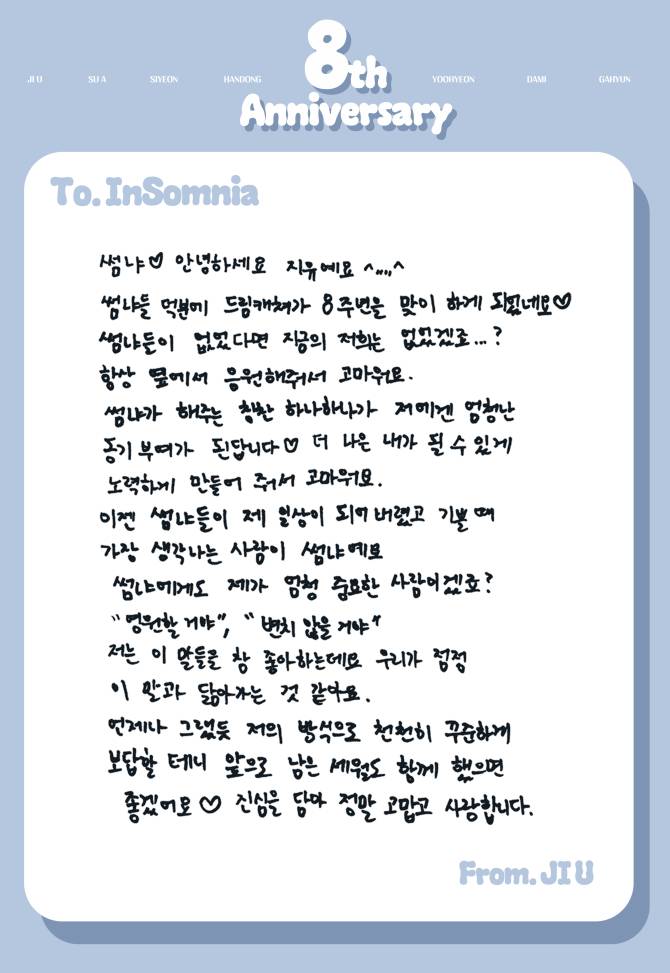 8th
JI U SU A SIYEON HANDONG YOOHYEON DAMI GAHYUN
Anniversary
To. InSomnia
썸냐♡ 안녕하세요 지유예요 ^,,,,^
썸냐들 덕분에 드림캐쳐가 8주년을 맞이 하게 되었네요♡
썸냐들이 없었다면 지금의 저희는 없었겠죠...?
항상 옆에서 응원해줘서 고마워요.
썸냐가 해주는 칭찬 하나하나가 저에겐 엄청난
동기부여가 된답니다♡ 더 나은 내가 될 수 있게
노력하게 만들어 줘서 고마워요.
이젠 썸냐들이 제 일상이 되어버렸고 기쁠 때
가장 생각나는 사람이 썸냐예요
썸냐에게도 제가 엄청 중요한 사람이겠죠?
"영원할 거야", "변치 않을 거야"
저는 이 말들을 참 좋아하는데요 우리가 점점
이 말과 닮아가는 것 같아요.
언제나 그랬듯 저의 방식으로 천천히 꾸준하게
보답할 테니 앞으로 남은 세월도 함께 했으면
좋겠어요♡ 진심을 담아 정말 고맙고 사랑합니다.
From. JI U